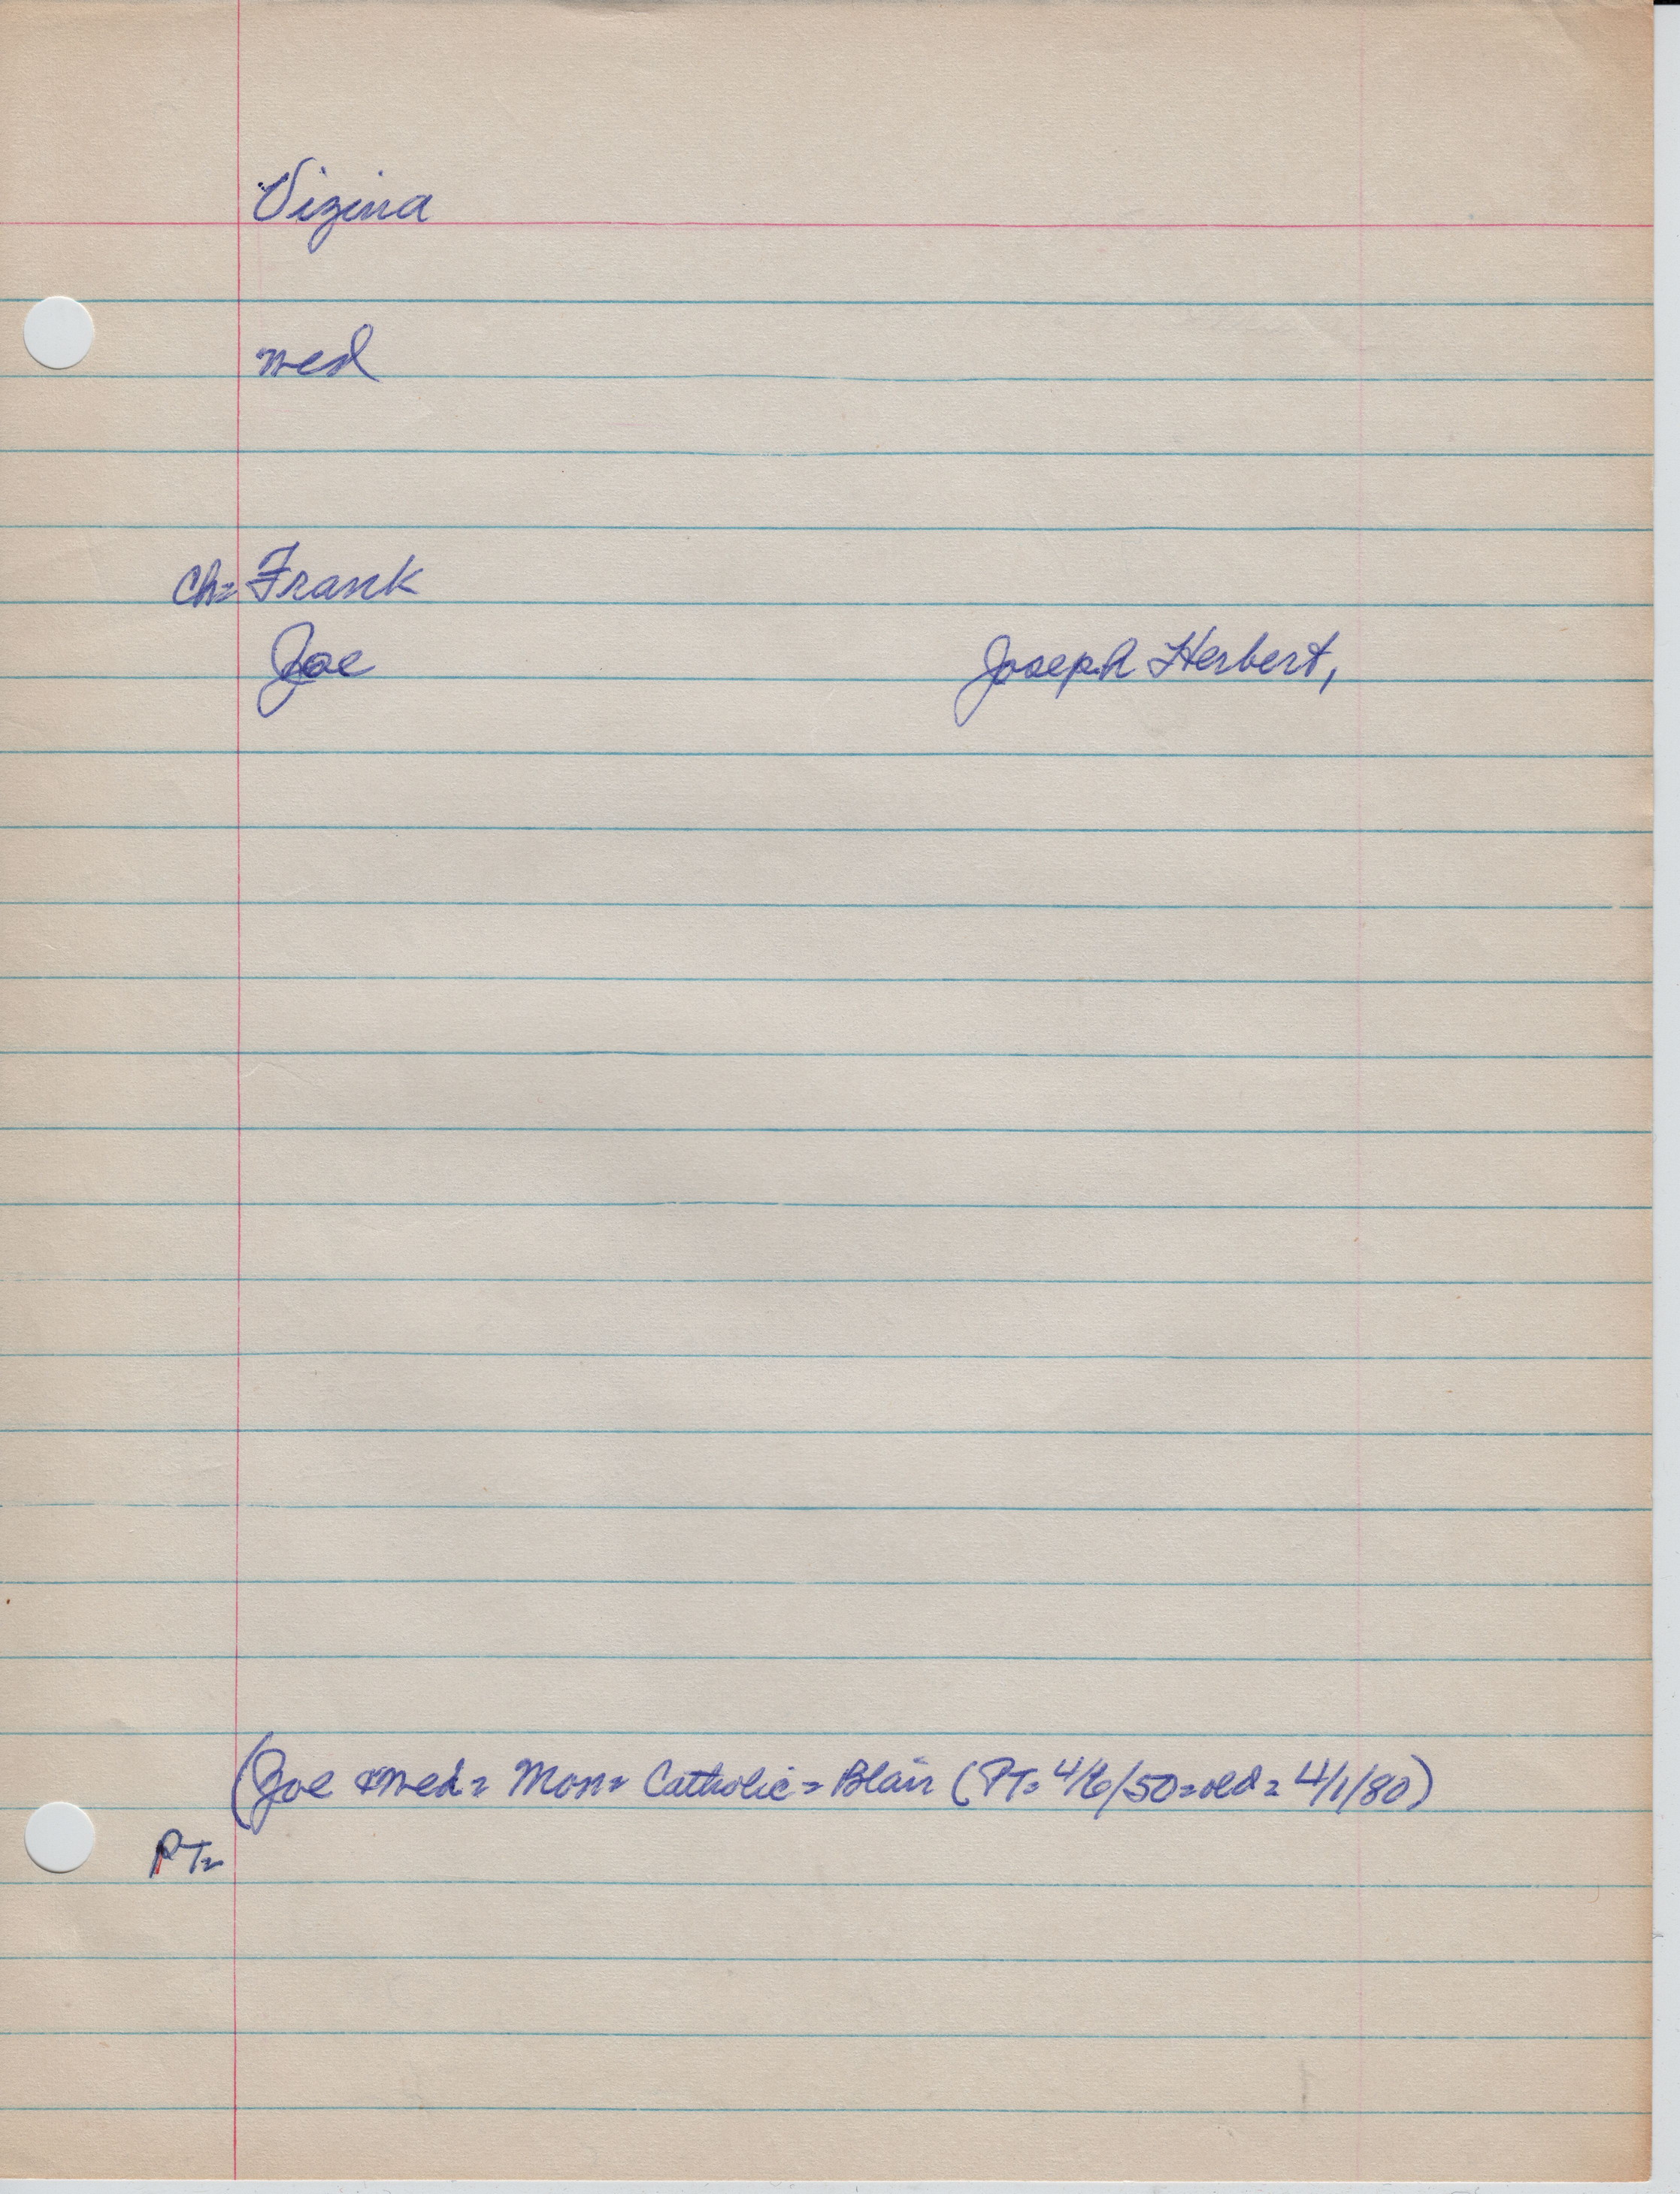 Vizina
wed
Ch= Frank
Joe Joseph Herbert,
(Joe & wed = Mon= Catholic = Blair (PT= 4/6/50=old = 4/1/80)
PT=